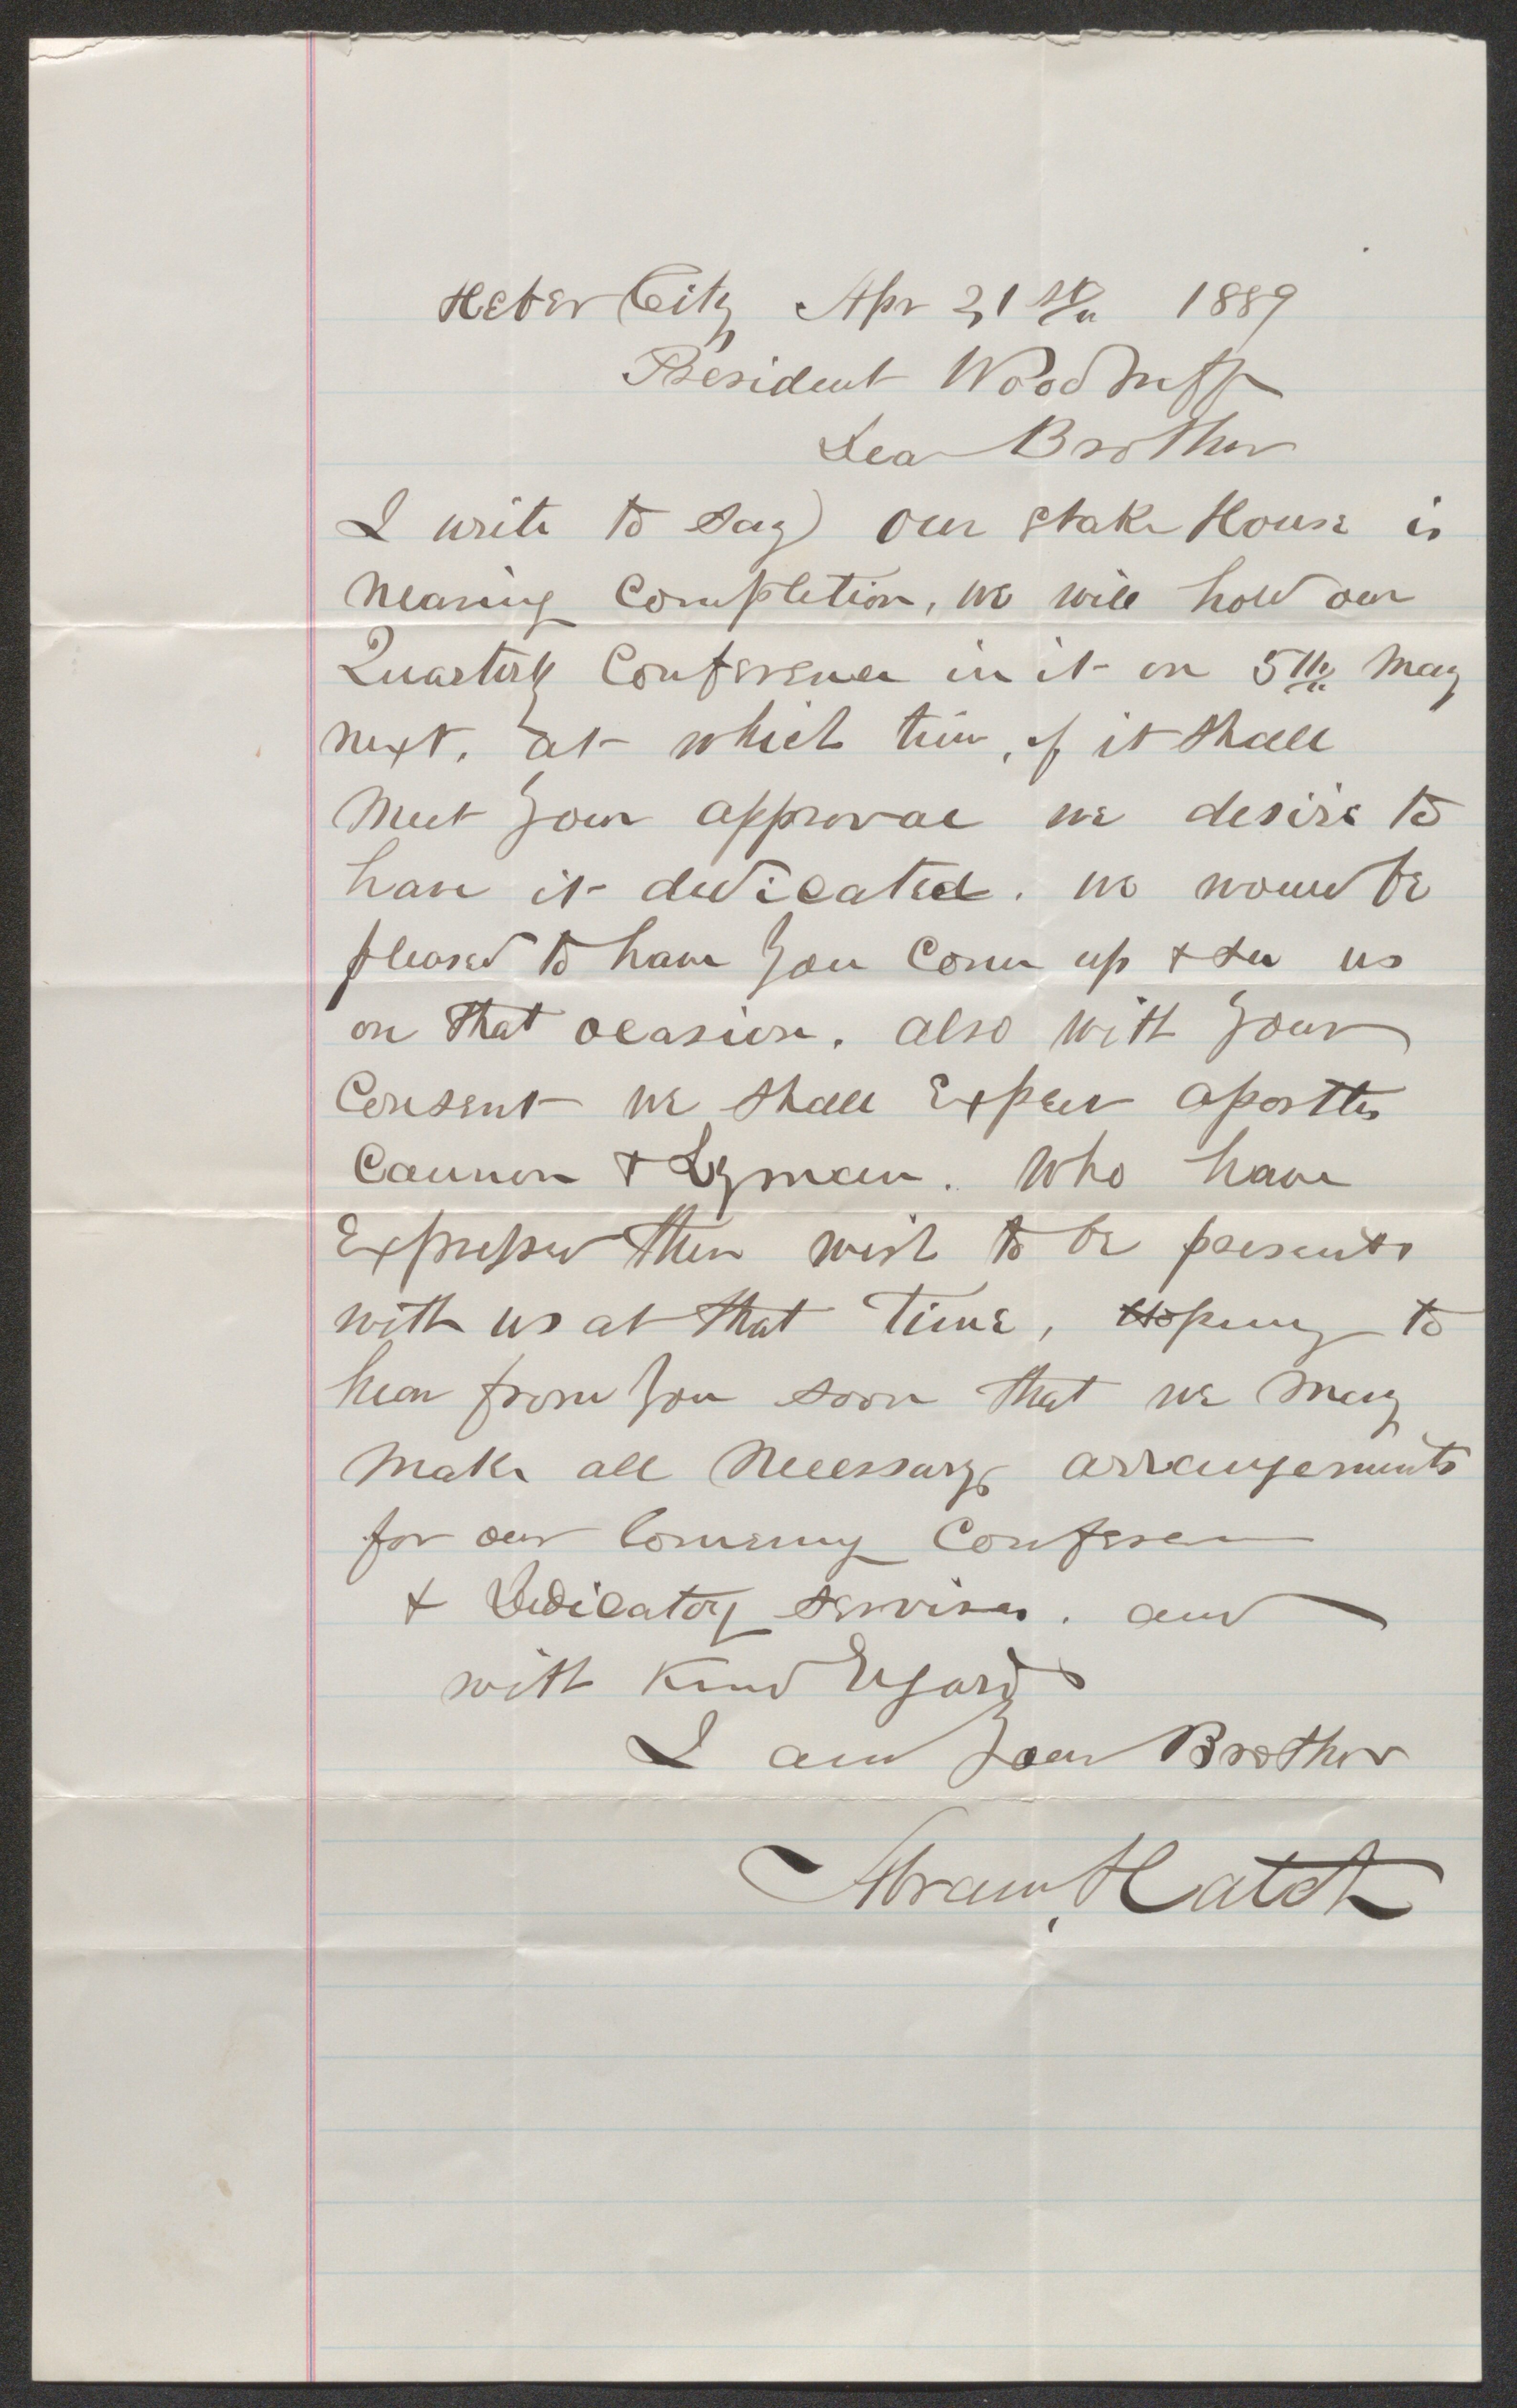 Heber City Apr 21st 1889
President Woodruff
Dear Brother
I write to say our Stake House is
nearing Completion, we will hold our
Quarterly Conference in it on 5th May
next. at which time, if it shall
meet your approval we desire to
have it dedicated. we would be
pleased to have you Come up & see us
on that ocasion. also with your
Consent we shall Expect apostles
Cannon & Lyman. who have
Expressed their wish to be presents
with us at that Time, Hoping to
hear from you soon that we may
make all necessary arrangements
for our Comeing Conferen
& Dedicatory services. and
with Kind Regards
I am your Brother
Abram Hatch